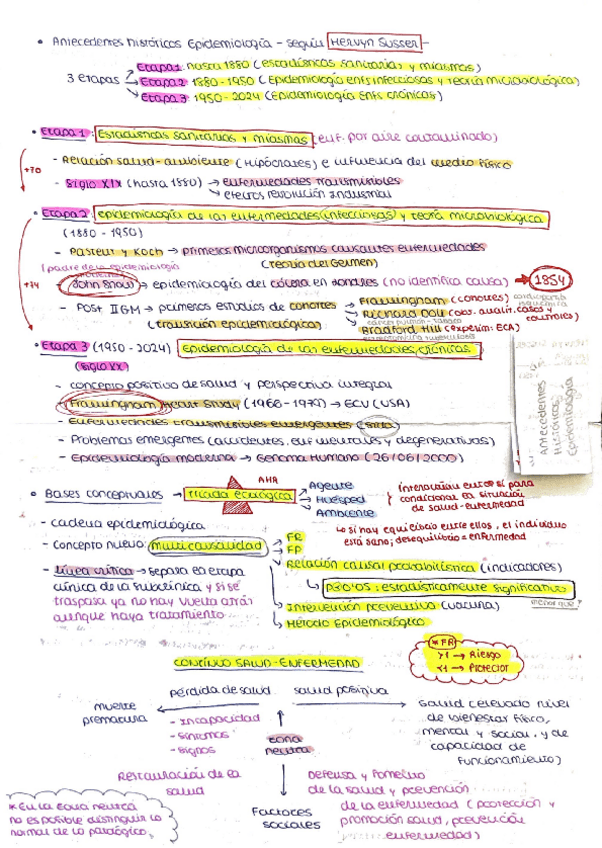 • Antecedentes históricos Epidemiología - según Mervyn Susser -
Etapa 1 hasta 1880 (estadísticas sanitarias y miasmas)
3 etapas → Etapa 2 1880-1950 (Epidemiología enfs infecciosas y teoría microbiológica)
Etapa 3 1950-2024 (Epidemiología Enfs crónicas)
• Etapa 1: Estadísticas sanitarias y miasmas (enf. por aire contaminado)
- Relación salud-ambiente (Hipócrates) e influencia del medio físico
+70
- Siglo XIX (hasta 1880) → enfermedades transmisibles
→ efectos revolución industrial
• Etapa 2: epidemiología de las enfermedades (infecciosas) y teoría microbiológica
(1880 - 1950)
- Pasteur y Koch → primeros microorganismos causantes enfermedades
(Teoría del Germen)
padre de la epidemiología
- John Snow → epidemiología del cólera en Londres (no identifica causa) → 1854
- Post IIGM → primeros estudios de cohortes → Framingham (cohortes)
(transición epidemiológica)
→ Richard Doll (obs. analít. casos y controles)
→ Bradford Hill (experim: ECA)
• Etapa 3 (1950-2024) Epidemiología de las enfermedades crónicas
(siglo XX)
- concepto positivo de salud y perspectiva integral
- Framingham Heart Study (1966-1970) → ECV (USA)
- Enfermedades transmisibles emergentes (SIDA)
- Problemas emergentes (accidentes, enf mentales y degenerativas)
- Epidemiología moderna → Genoma Humano (26/06/2000)
Antecedentes
Históricos
Epidemiología
AHA
• Bases conceptuales → triada ecológica → Agente
→ Huésped
→ Ambiente
interactúan entre sí para
condicionar la situación
de salud-enfermedad
↳ si hay equilibrio entre ellos, el individuo
está sano; desequilibrio = enfermedad
- cadena epidemiológica
- Concepto nuevo: multicausalidad → FR
→ FP
→ Relación causal probabilística (indicadores)
↳ p<0'05: estadísticamente significativo
menor que
→ Intervención preventiva (vacuna)
→ Método epidemiológico
- línea crítica → separa la etapa
clínica de la subclínica y si se
traspasa ya no hay vuelta atrás
aunque haya tratamiento
* FR
>1 → Riesgo
<1 → Protector
CONTINUO SALUD-ENFERMEDAD
pérdida de salud
salud positiva
muerte
prematura
- Incapacidad
- síntomas
- signos
zona
neutra
Salud (elevado nivel
de bienestar físico,
mental y social, y de
capacidad de
funcionamiento)
Restauración de la
salud
Defensa y Fomento
de la salud y prevención
de la enfermedad (protección y
promoción salud, prevención
enfermedad)
Factores
sociales
* En la zona neutra
no es posible distinguir lo
normal de lo patológico.